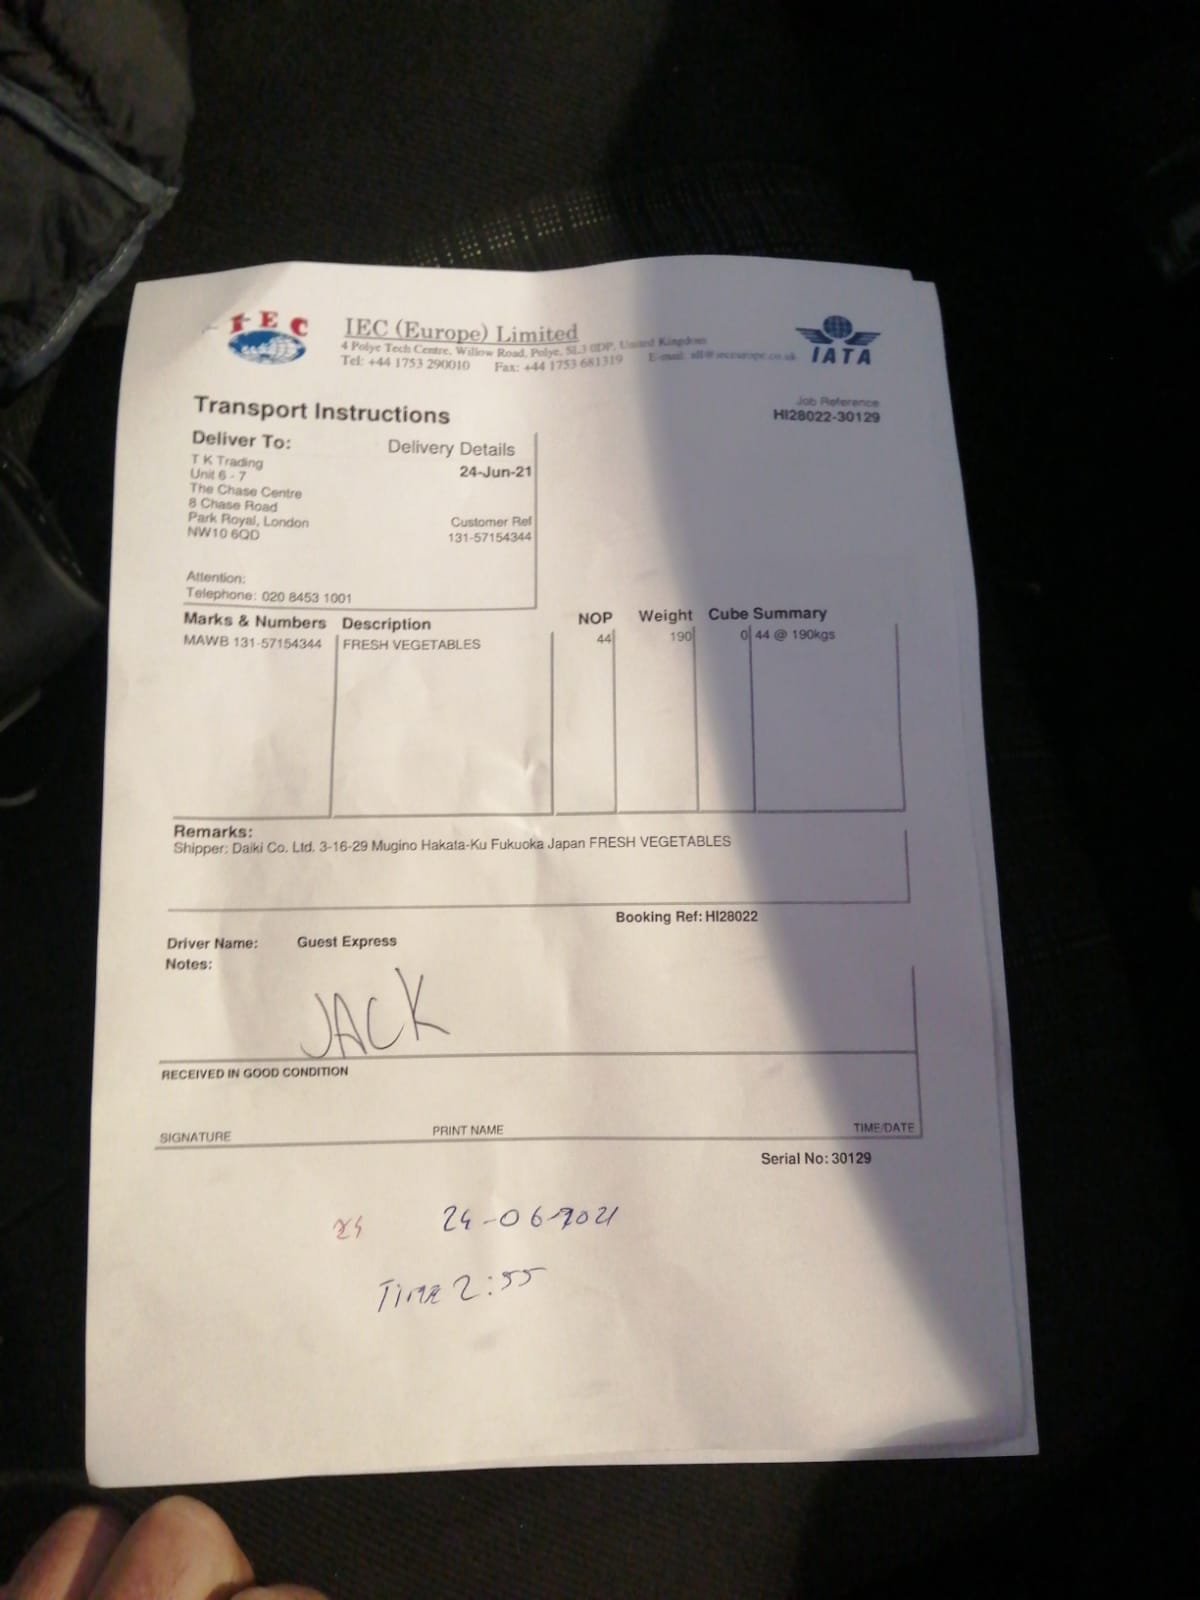 IEC
IEC (Europe) Limited
4 Polye Tech Centre, Willow Road, Polye, SL3 0DP, United Kingdom
Tel: +44 1753 290010 Fax: +44 1753 681319 E-mail:
IATA
Job Reference
HI28022-30129
Transport Instructions
Deliver To:
T K Trading
Unit 6 - 7
The Chase Centre
8 Chase Road
Park Royal, London
NW10 6QD
Delivery Details
24-Jun-21
Customer Ref
131-57154344
Attention:
Telephone: 020 8453 1001
Marks & Numbers Description NOP Weight Cube Summary
MAWB 131-57154344 FRESH VEGETABLES 44 190 0 44 @ 190kgs
Remarks:
Shipper: Daiki Co. Ltd. 3-16-29 Mugino Hakata-Ku Fukuoka Japan FRESH VEGETABLES
Booking Ref: HI28022
Driver Name: Guest Express
Notes:
JACK
RECEIVED IN GOOD CONDITION
SIGNATURE PRINT NAME TIME/DATE
Serial No: 30129
24-06-2021
Time 2:55